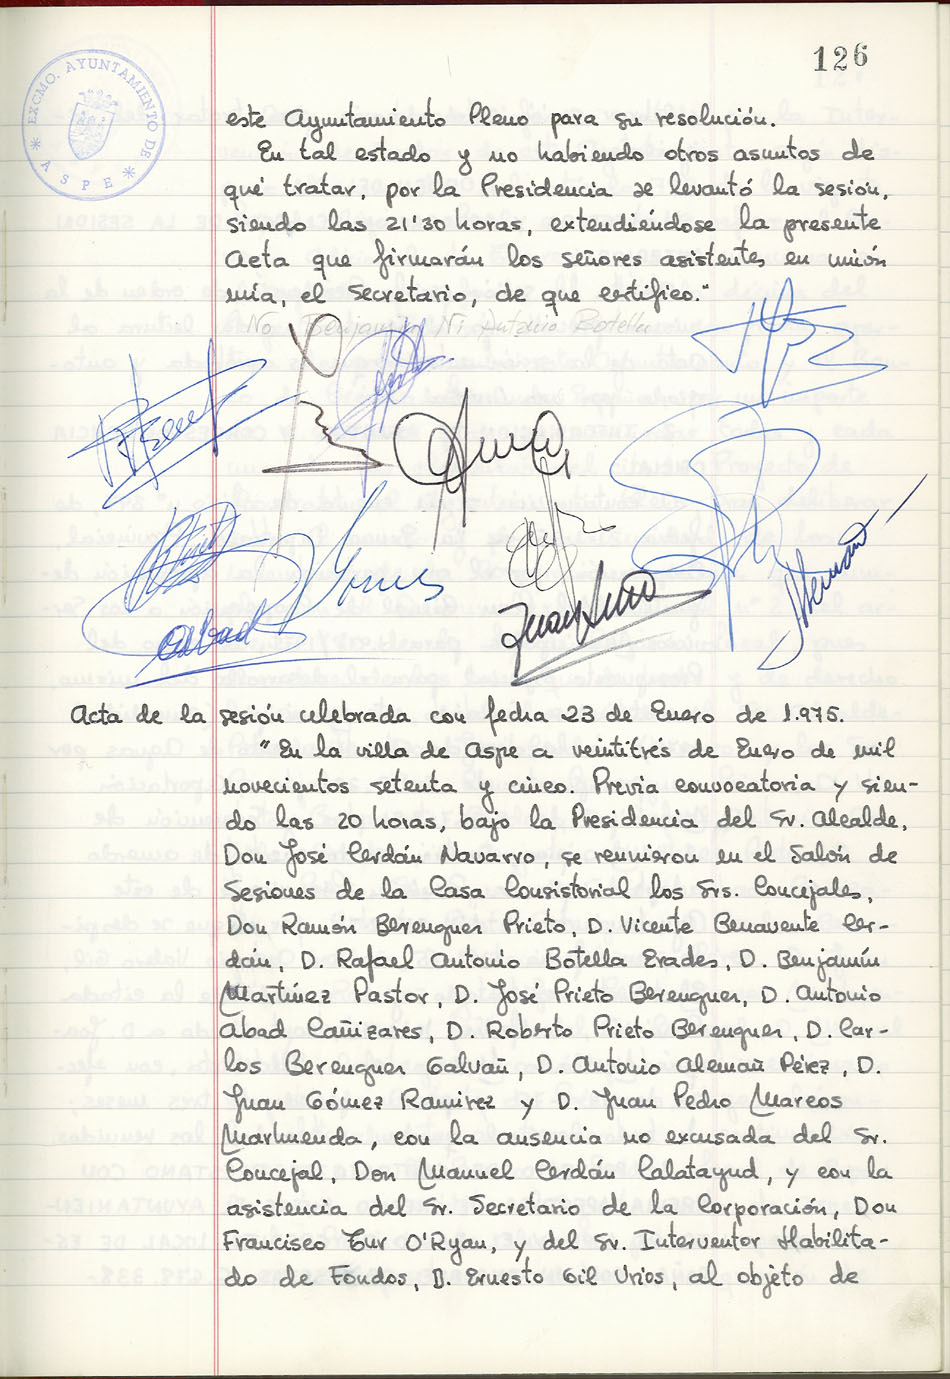 126
EXCMO. AYUNTAMIENTO DE
* ASPE *
este Ayuntamiento Pleno para su resolución.
En tal estado y no habiendo otros asuntos de
qué tratar, por la Presidencia se levantó la sesión,
siendo las 21'30 horas, extendiéndose la presente
Acta que firmarán los señores asistentes en unión
mía, el Secretario, de que certifico."
No Benjamín Ni Antonio Botella
Abad
Juan
Acta de la sesión celebrada con fecha 23 de Enero de 1.975.
"En la villa de Aspe a veintitrés de Enero de mil
novecientos setenta y cinco. Previa convocatoria y sien-
do las 20 horas, bajo la Presidencia del Sr. Alcalde,
Don José Cerdán Navarro, se reunieron en el Salón de
Sesiones de la Casa Consistorial los Srs. Concejales,
Don Ramón Berenguer Prieto, D. Vicente Benavente Cer-
dán, D. Rafael Antonio Botella Erades, D. Benjamín
Martínez Pastor, D. José Prieto Berenguer, D. Antonio
Abad Cañizares, D. Roberto Prieto Berenguer, D. Car-
los Berenguer Galvañ, D. Antonio Alemañ Pérez, D.
Juan Gómez Ramirez y D. Juan Pedro Marcos
Marhuenda, con la ausencia no excusada del Sr.
Concejal, Don Manuel Cerdán Calatayud, y con la
asistencia del Sr. Secretario de la Corporación, Don
Francisco Tur O'Ryan, y del Sr. Interventor Habilita-
do de Fondos, D. Ernesto Gil Urios, al objeto de